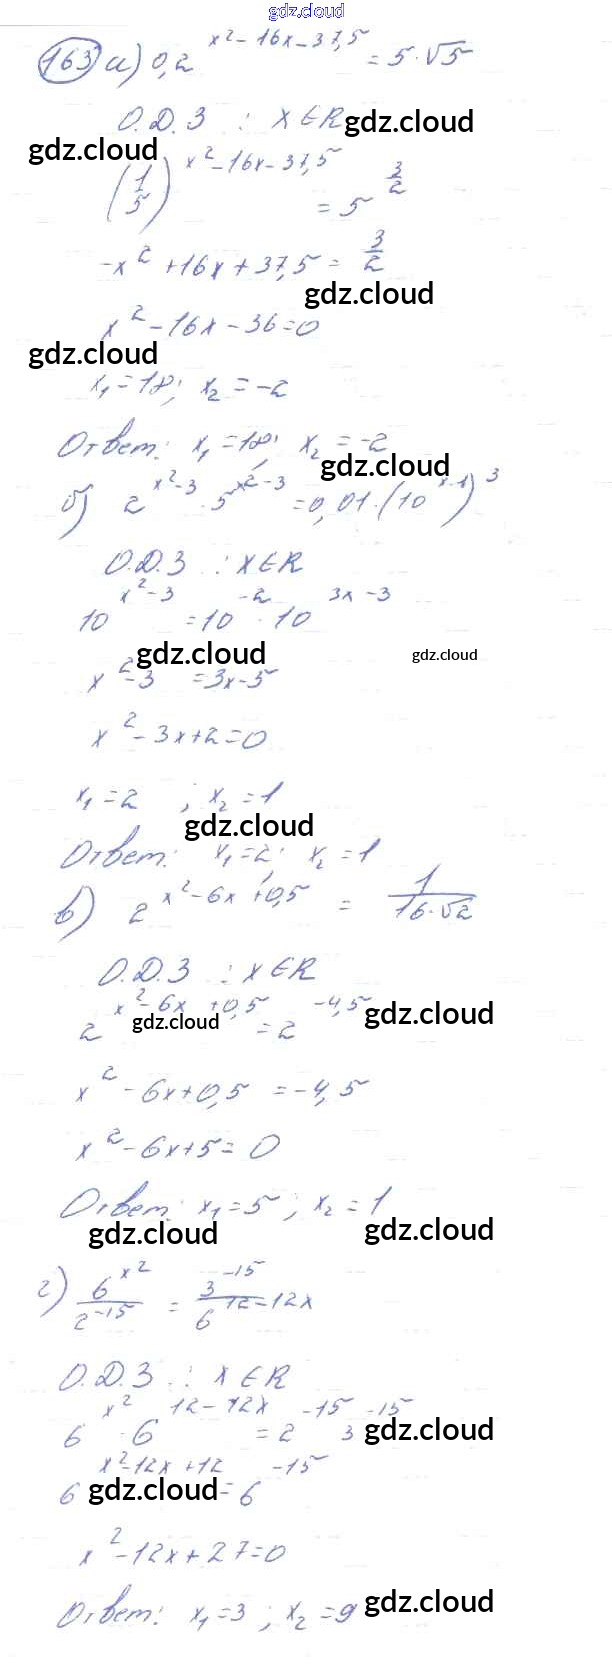 gdz.cloud
163 а) 0,2^(x²-16x-37,5) = 5·√5
О.Д.З : x∈R gdz.cloud
gdz.cloud
(1/5)^(x²-16x-37,5) = 5^(3/2)
-x²+16x+37,5 = 3/2
gdz.cloud
x²-16x-36=0
gdz.cloud
x₁=18; x₂=-2
Ответ: x₁=18; x₂=-2
gdz.cloud
б) 2^(x²-3)·5^(x²-3) = 0,01·(10^(x-1))³
О.Д.З : x∈R
10^(x²-3) = 10^(-2)·10^(3x-3)
gdz.cloud gdz.cloud
x²-3 = 3x-5
x²-3x+2=0
x₁=2 ; x₂=1
gdz.cloud
Ответ: x₁=2; x₂=1
в) 2^(x²-6x+0,5) = 1/(16·√2)
О.Д.З : x∈R
2^(x²-6x+0,5) = 2^(-4,5)
gdz.cloud gdz.cloud
x²-6x+0,5 = -4,5
x²-6x+5=0
Ответ: x₁=5; x₂=1
gdz.cloud gdz.cloud
г) 6^(x²)/2^(-15) = 3^(-15)/6^(12-12x)
О.Д.З : x∈R
6^(x²)·6^(12-12x) = 2^(-15) 3^(-15)
gdz.cloud
6^(x²-12x+12) = 6^(-15)
gdz.cloud
x²-12x+27=0
Ответ: x₁=3; x₂=9
gdz.cloud